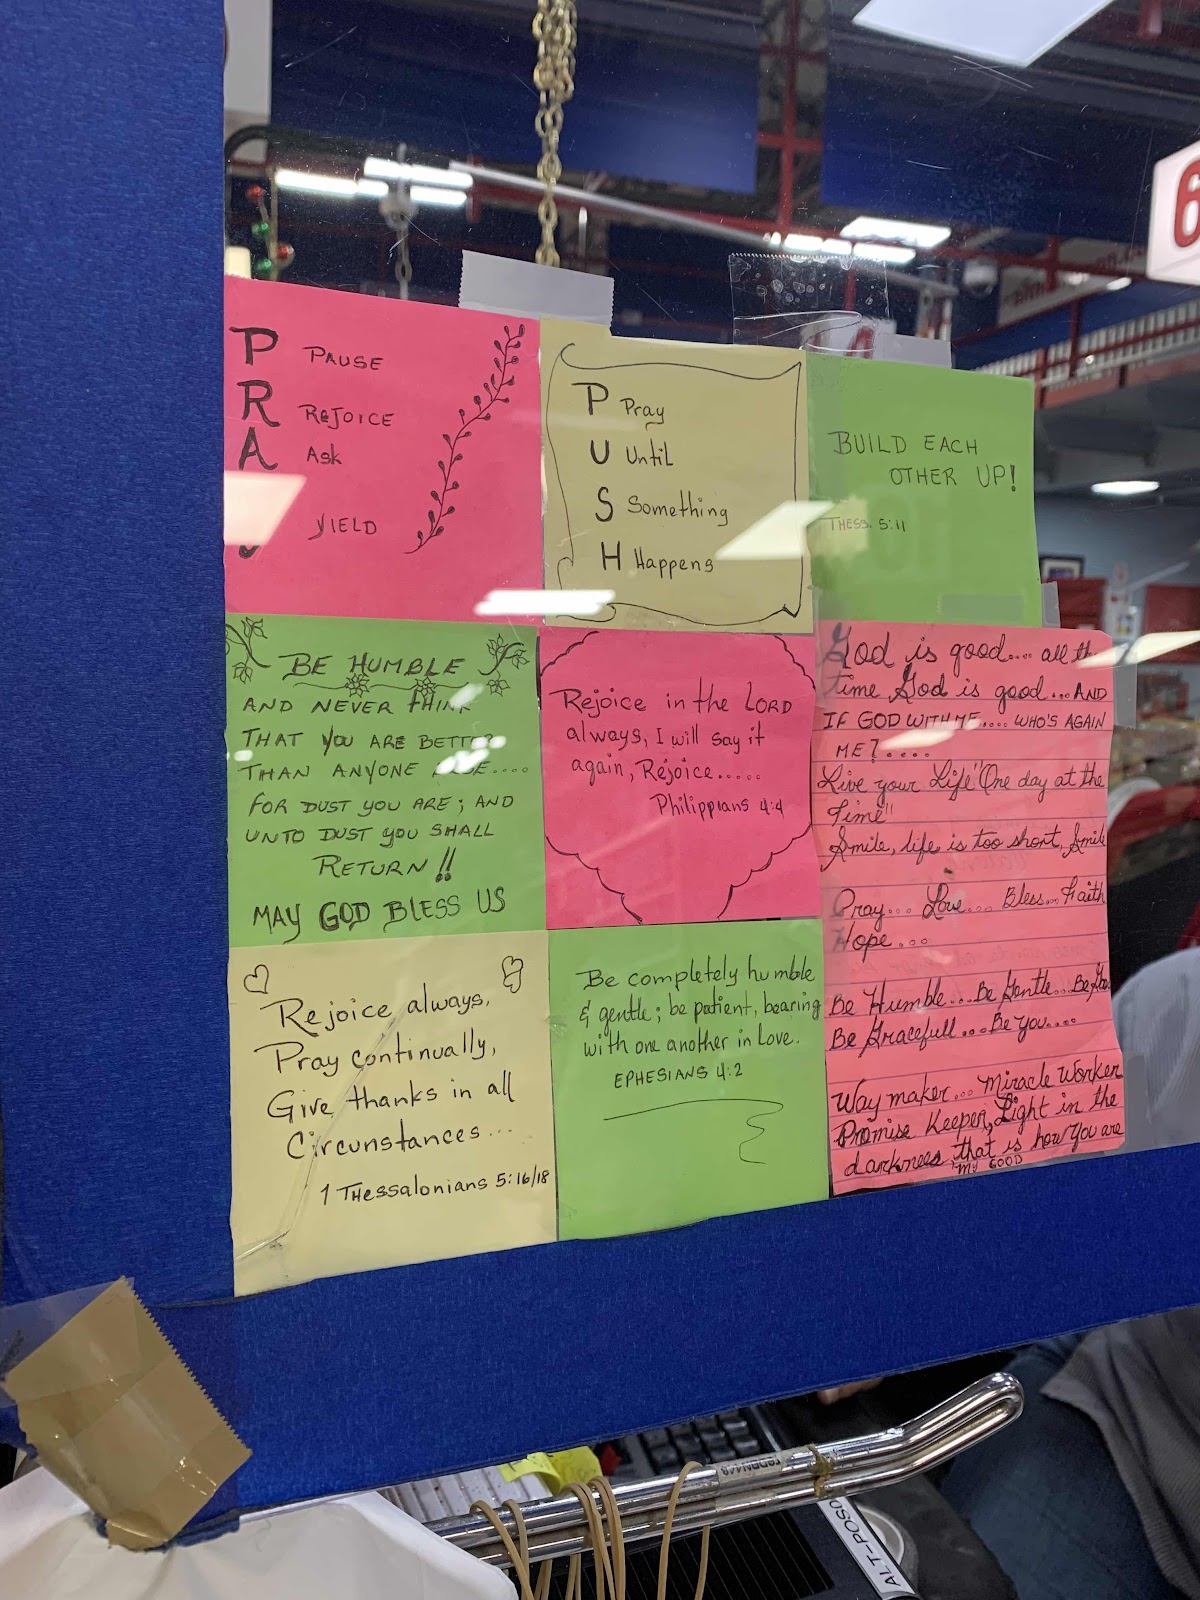 P PAUSE
R REJOICE
A Ask
YIELD
P Pray
U Until
S Something
H Happens
BUILD EACH
OTHER UP!
THESS. 5:11
BE HUMBLE
AND NEVER THINK
THAT YOU ARE BETTER
THAN ANYONE ....
FOR DUST YOU ARE; AND
UNTO DUST YOU SHALL
RETURN!!
MAY GOD BLESS US
Rejoice in the LORD
always, I will say it
again, Rejoice.....
Philippians 4:4
God is good.... all th
time, God is good...AND
IF GOD WITH ME.... WHO'S AGAIN
ME?....
Live your Life "One day at the
Time"
Smile, life is too short, Smile
Pray... Love... Bless... Faith
Hope...
Be Humble... Be Gentle... Be
Be Gracefull... Be You....
Way maker... Miracle Worker
Promise Keeper, Light in the
darkness, that is how You are
my GOOD
Rejoice always,
Pray continually,
Give thanks in all
Circunstances...
1 Thessalonians 5:16/18
Be completely humble
& gentle; be patient, bearing
with one another in Love.
EPHESIANS 4:2
6
ALT-POS0